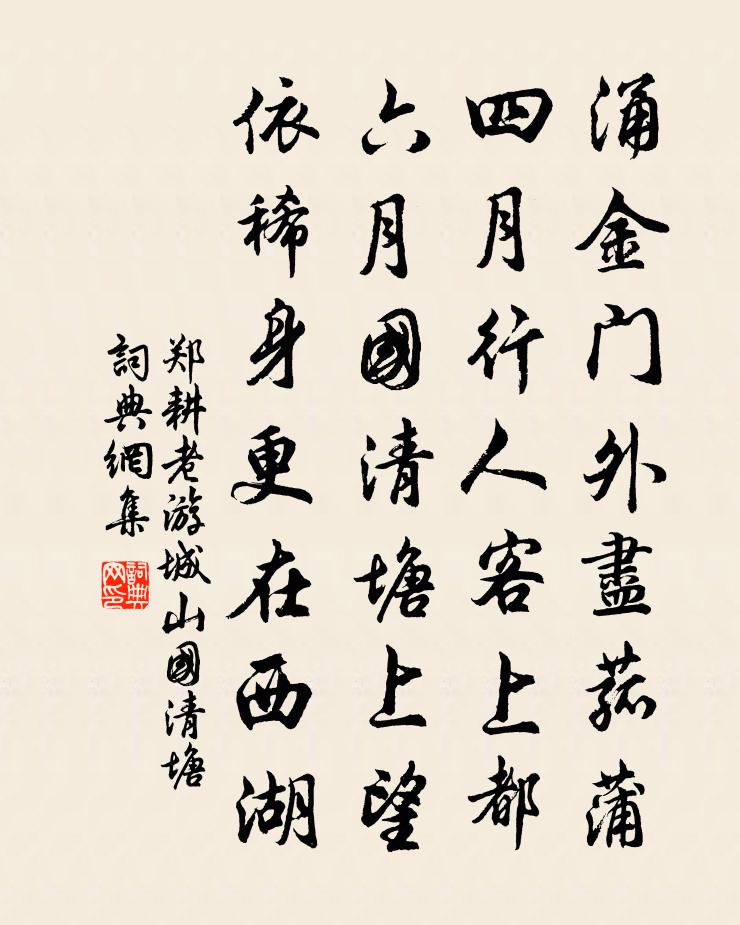 涌金门外盡菰蒲
四月行人客上都
六月國清塘上望
依稀身更在西湖
郑耕老游城山國清塘
詞典網集
詞典网印